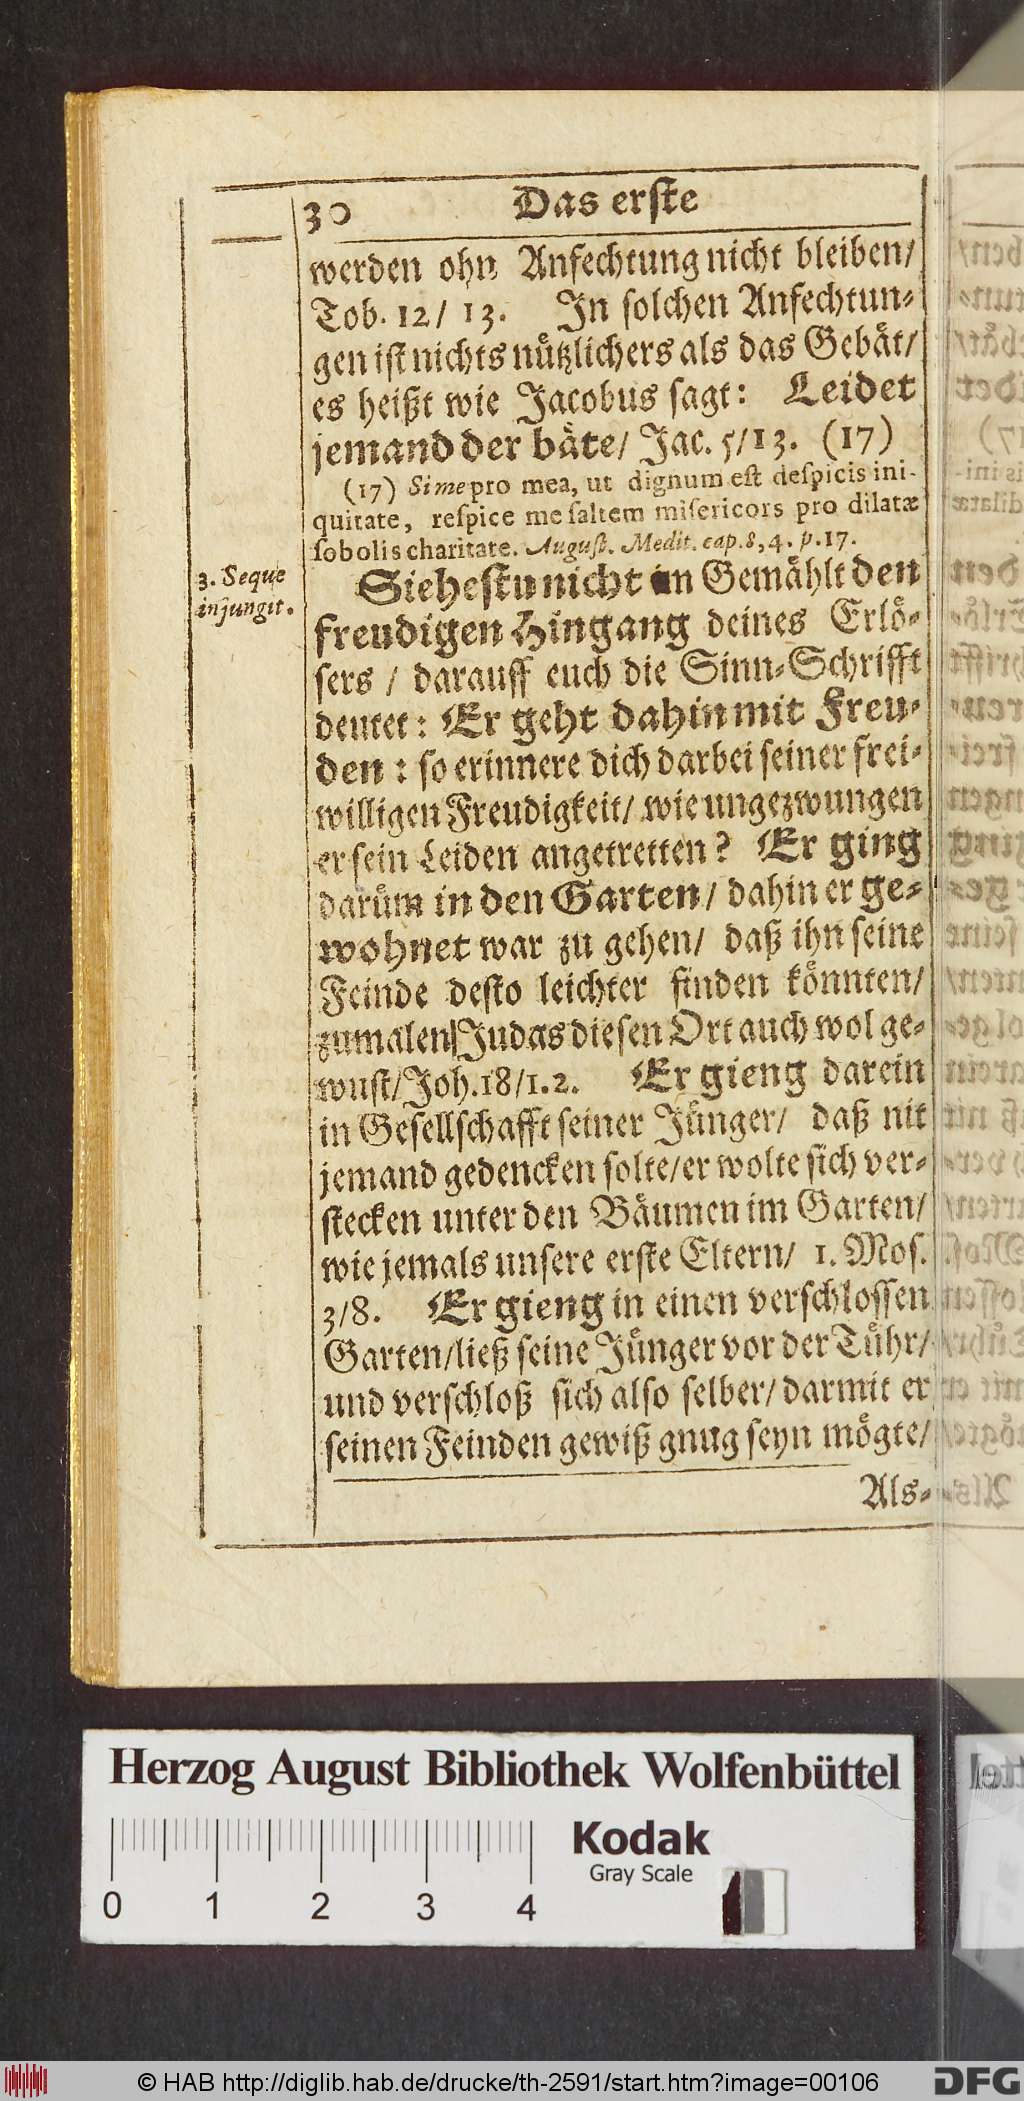 30 Das erste
werden ohn Anfechtung nicht bleiben/
Tob. 12/ 13. In solchen Anfechtun-
gen ist nichts nützlichers als das Gebät/
es heißt wie Jacobus sagt: Leidet
jemand der bäte/ Jac. 5/13. (17)
(17) Si me pro mea, ut dignum est despicis ini-
quitate, respice me saltem misericors pro dilatæ
sobolis charitate. August. Medit. cap. 8, 4. p. 17.
3. Seque
injungit.
Siehestu nicht im Gemählt den
freudigen Hingang deines Erlö-
sers / darauff euch die Sinn-Schrifft
deutet: Er geht dahin mit Freu-
den: so erinnere dich darbei seiner frei-
willigen Freudigkeit/ wie ungezwungen
er sein Leiden angetretten? Er ging
darüm in den Garten/ dahin er ge-
wohnet war zu gehen/ daß ihn seine
Feinde desto leichter finden könnten/
zumalen Judas diesen Ort auch wol ge-
wust/ Joh. 18/1.2. Er gieng darein
in Gesellschafft seiner Jünger/ daß nit
jemand gedencken solte/ er wolte sich ver-
stecken unter den Bäumen im Garten/
wie jemals unsere erste Eltern/ 1. Mos.
3/8. Er gieng in einen verschlossen
Garten/ ließ seine Jünger vor der Tühr/
und verschloß sich also selber/ darmit er
seinen Feinden gewiß gnug seyn mögte/
Als-
Herzog August Bibliothek Wolfenbüttel
Kodak
Gray Scale
0 1 2 3 4
© HAB http://diglib.hab.de/drucke/th-2591/start.htm?image=00106
DFG